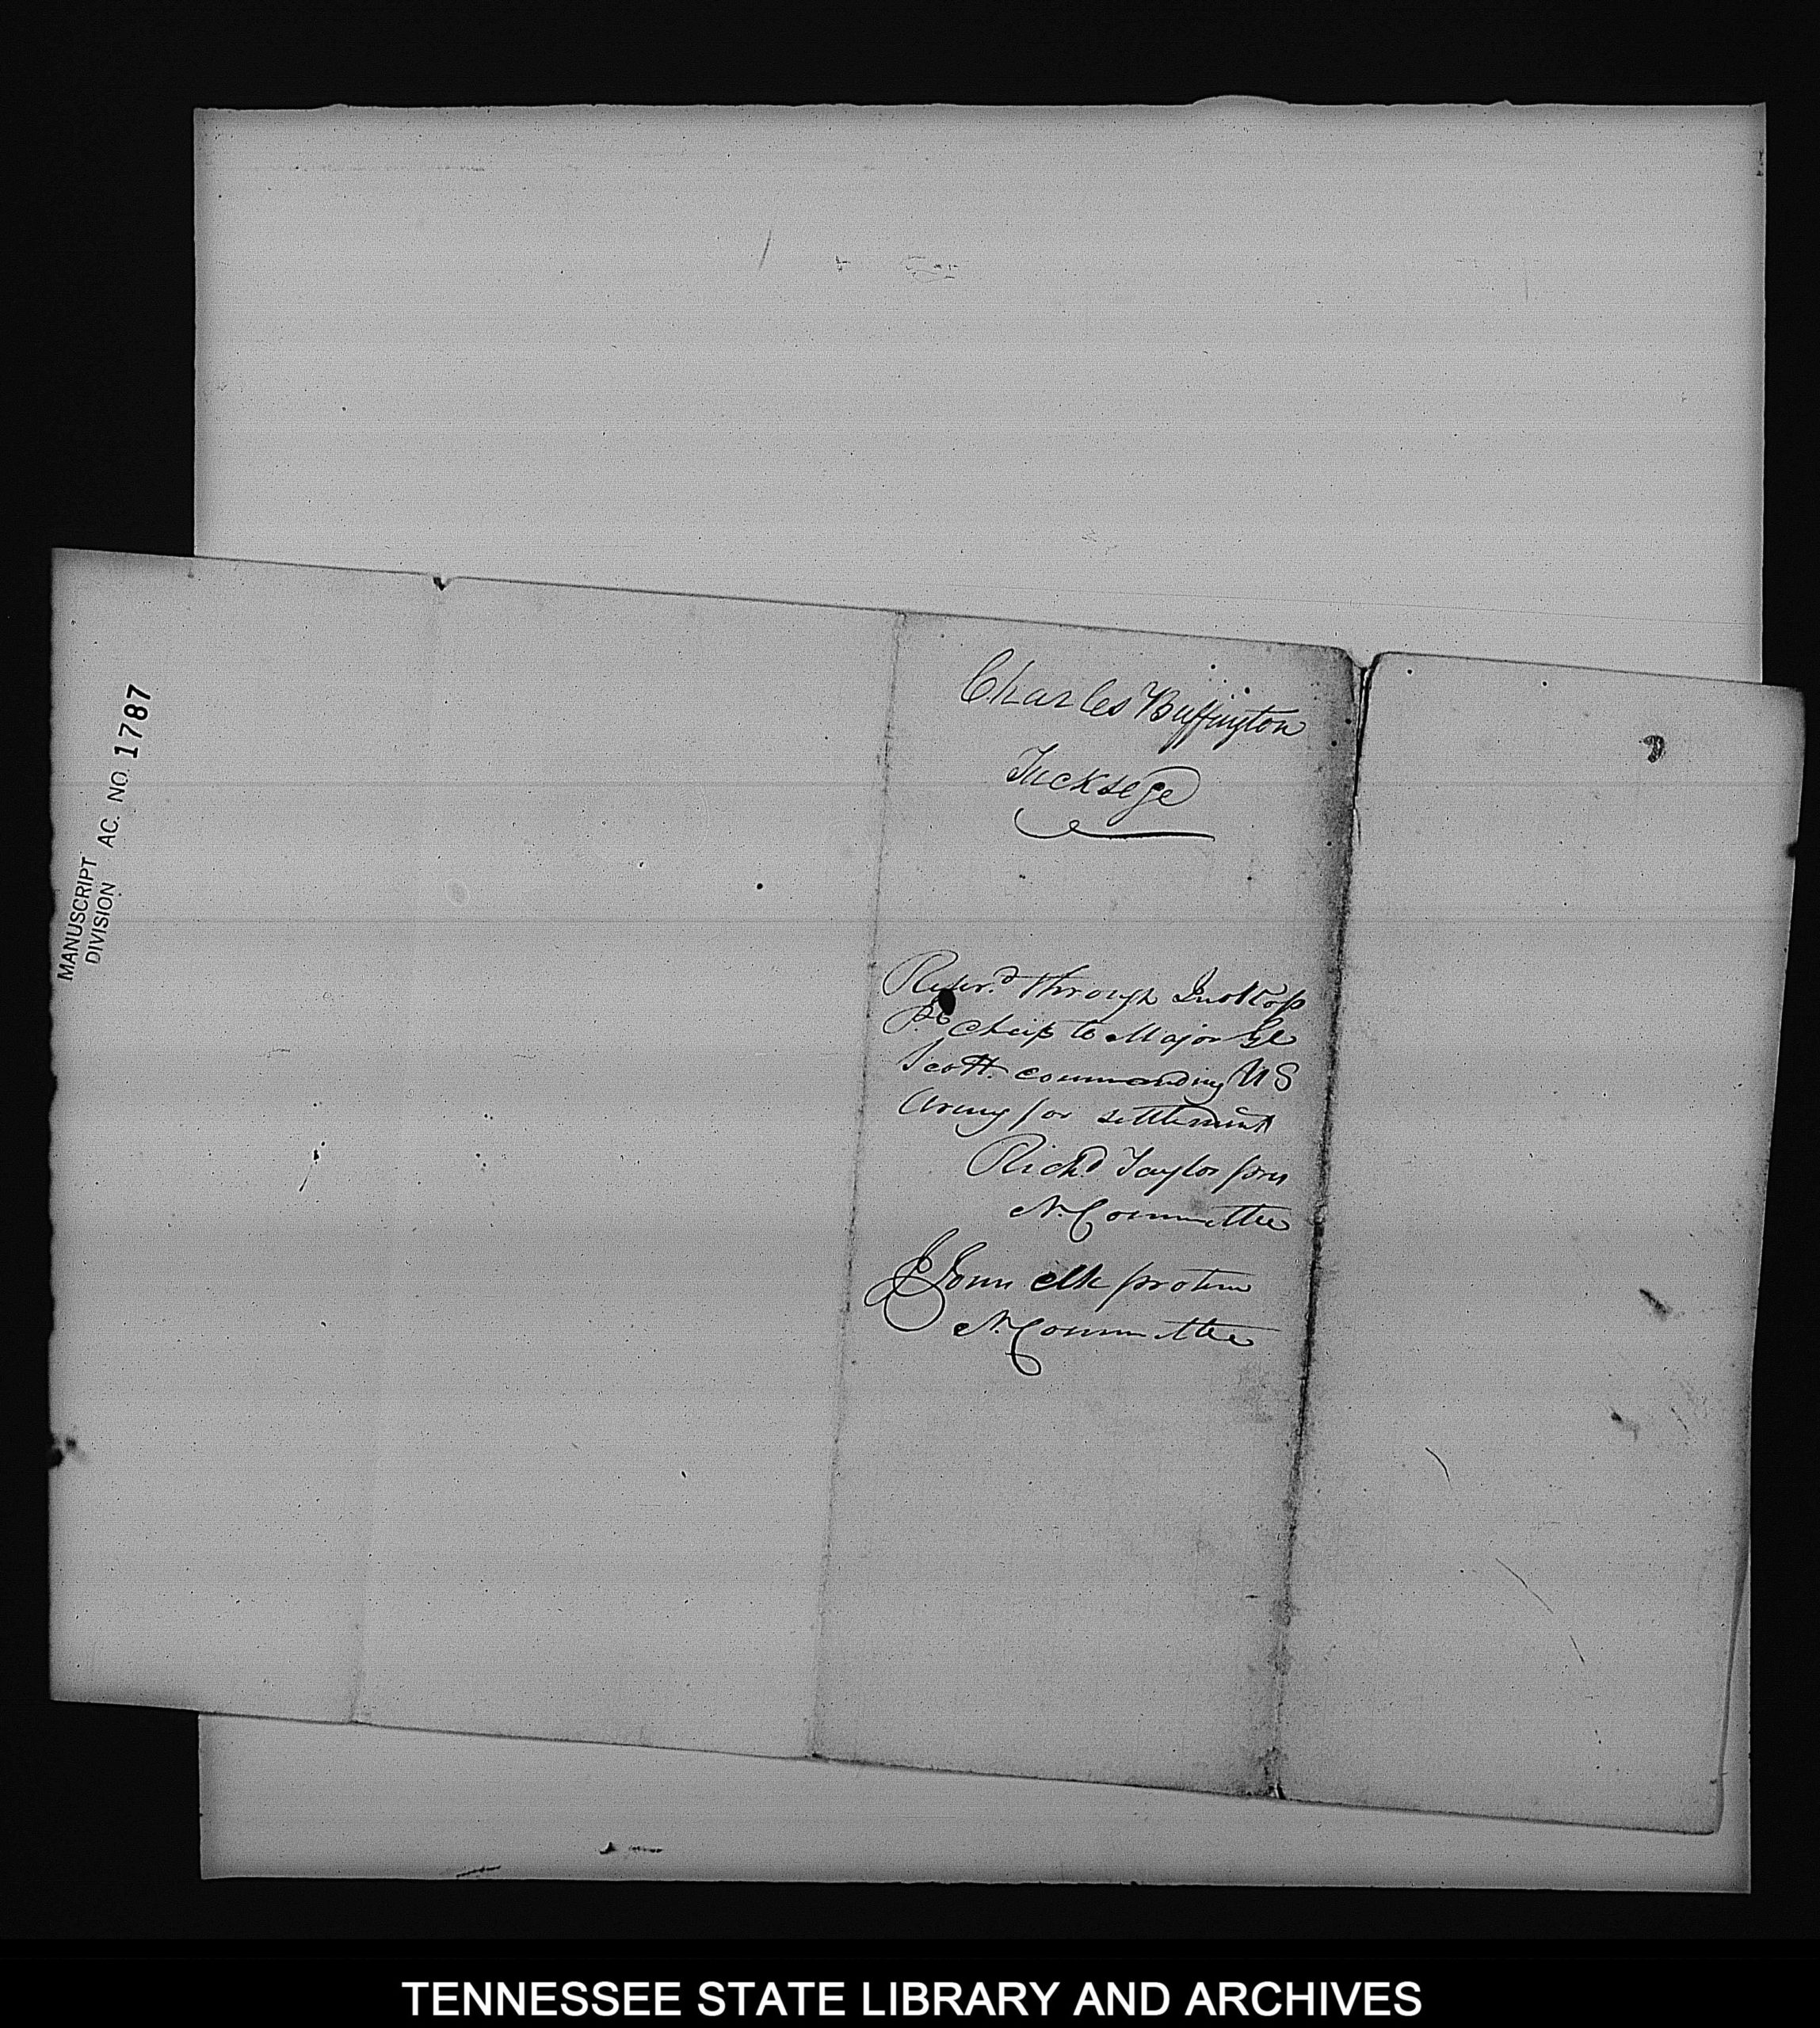 MANUSCRIPT
DIVISION AC. NO. 1787
Charles Buffington
Tucksege
Refer.d through Jno Ross
Pr. Cheif to Major Ge
Scott commanding US
Army for settlement
Richd Taylor pres
N. Committee
clk protem
N. Committee
TENNESSEE STATE LIBRARY AND ARCHIVES